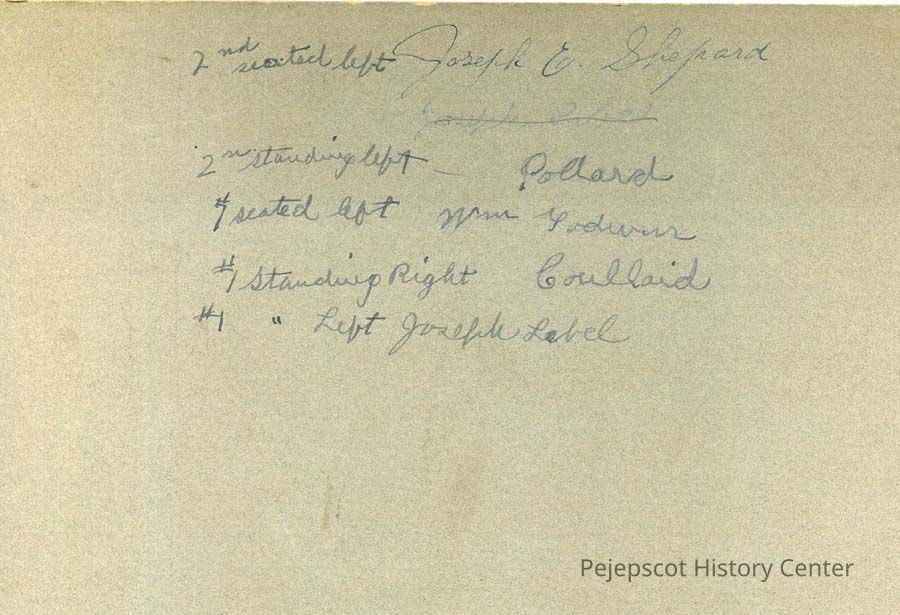 2nd seated left Joseph E. Shepard
Joseph
2n standing left - Pollard
# seated left Wm
#1 Standing Right Coullaid
#1 " Left Joseph Label
Pejepscot History Center